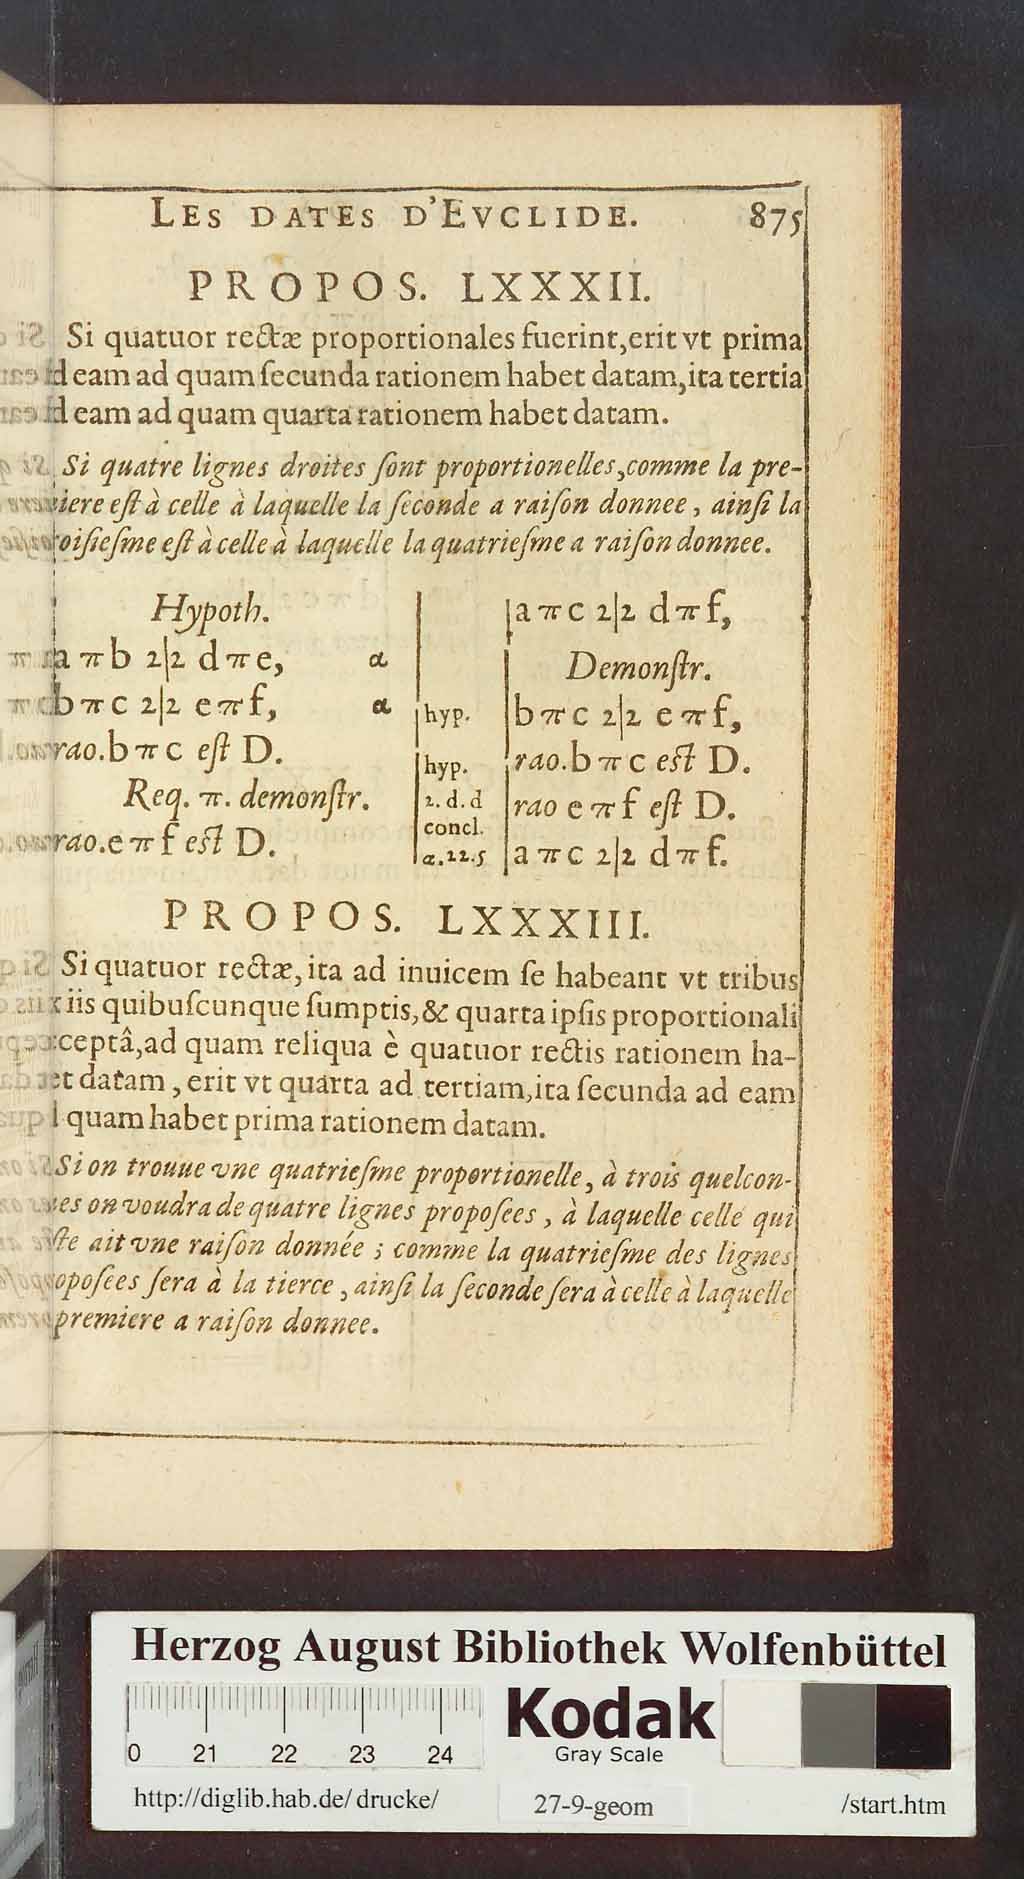 LES DATES D'EVCLIDE. 875
PROPOS. LXXXII.
Si quatuor rectæ proportionales fuerint, erit vt prima
d eam ad quam ſecunda rationem habet datam, ita tertia
d eam ad quam quarta rationem habet datam.
Si quatre lignes droites ſont proportionelles, comme la pre-
iere eſt à celle à laquelle la ſeconde a raiſon donnee, ainſi la
oiſieſme eſt à celle à laquelle la quatrieſme a raiſon donnee.
Hypoth.
a π b 2|2 d π e, α
b π c 2|2 e π f, α
rao. b π c eſt D.
Req. π. demonſtr.
rao. e π f eſt D.
a π c 2|2 d π f,
Demonſtr.
hyp. b π c 2|2 e π f,
hyp. rao. b π c eſt D.
2. d. d rao e π f eſt D.
concl.
α. 22. 5 a π c 2|2 d π f.
PROPOS. LXXXIII.
Si quatuor rectæ, ita ad inuicem ſe habeant vt tribus
iis quibuſcunque ſumptis, & quarta ipſis proportionali
ceptâ, ad quam reliqua è quatuor rectis rationem ha-
et datam, erit vt quarta ad tertiam, ita ſecunda ad eam
quam habet prima rationem datam.
Si on trouue vne quatrieſme proportionelle, à trois quelcon-
es on voudra de quatre lignes propoſees, à laquelle celle qui
ſte ait vne raiſon donnée ; comme la quatrieſme des lignes
opoſees ſera à la tierce, ainſi la ſeconde ſera à celle à laquelle
premiere a raiſon donnee.
Herzog August Bibliothek Wolfenbüttel
0 21 22 23 24
Kodak
Gray Scale
http://diglib.hab.de/ drucke/ 27-9-geom /start.htm